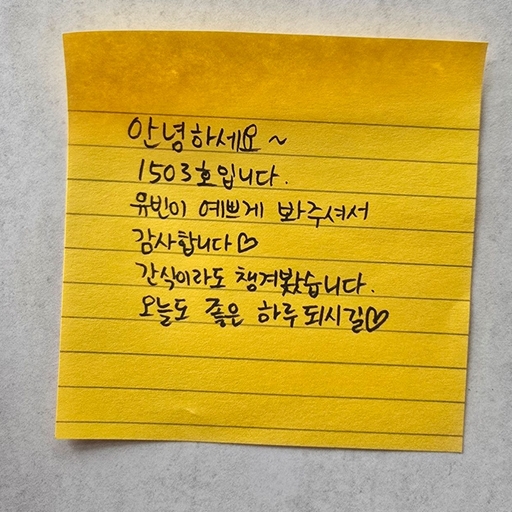 안녕하세요 ~
1503호입니다.
유빈이 예쁘게 봐주셔서
감사합니다♡
간식이라도 챙겨봤습니다.
오늘도 좋은 하루 되시길♡